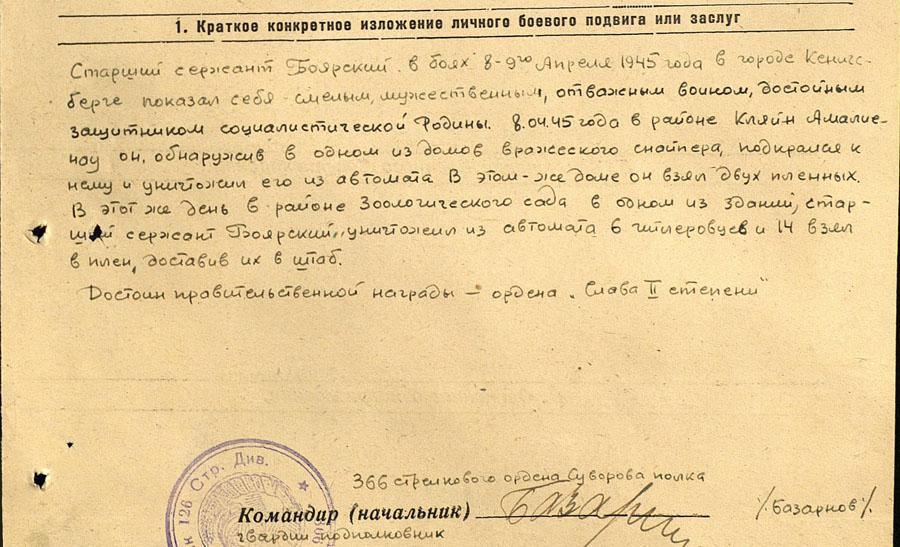 1. Краткое конкретное изложение личного боевого подвига или заслуг
Старший сержант Боярский в боях 8-9го Апреля 1945 года в городе Кенигс-
берге показал себя смелым, мужественным, отважным воином, достойным
защитником социалистической Родины. 8.04.45 года в районе Кляйн Амалие-
нау он, обнаружив в одном из домов вражеского снайпера, подкрался к
нему и уничтожил его из автомата В этом-же доме он взял двух пленных.
В этот же день в районе Зоологического сада в одном из зданий, стар-
ший сержант Боярский, уничтожил из автомата 6 гитлеровцев и 14 взял
в плен, доставив их в штаб.
Достоин правительственной награды — ордена „Слава II степени"
126 Стр. Див.
366
366 стрелкового ордена Суворова полка
Командир (начальник) Базарн
/Базарнов/.
гвардии подполковник